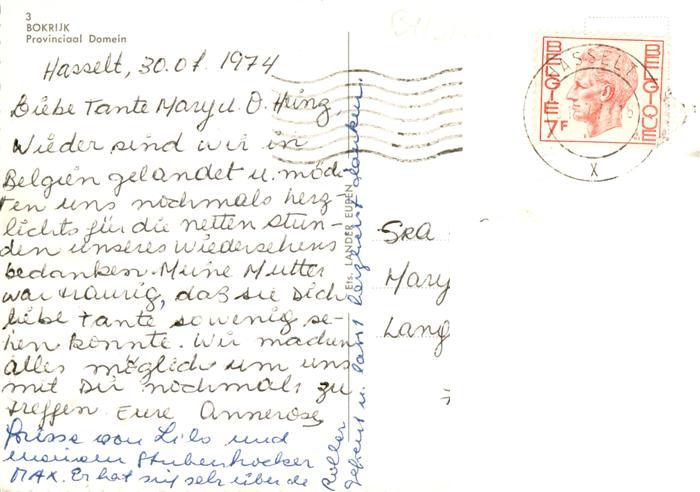 3
BOKRIJK
Provinciaal Domein
Hasselt, 30.07.1974
Liebe Tante Mary u. O. Heinz,
Wieder sind wir in
Belgien gelandet u. möch-
ten uns nochmals herz
lichts für die netten Stun-
den unseres Wiedersehens
bedanken. Meine Mutter
war traurig, daß sie Dich
liebe Tante so wenig se-
hen konnte. Wir machen
alles möglich um uns
mit Dir nochmals zu
treffen. Eure Annerose
Grüsse von Lilo und
meinem Stubenhocker
MAX. Er hat sich sehr über de
Roller
gefreut u. lässt herzlichst danken.
Ets. LANDER EUPEN
BELGIE 7F
BELGIQUE
HASSELT
X
SRA
Mary
Lang